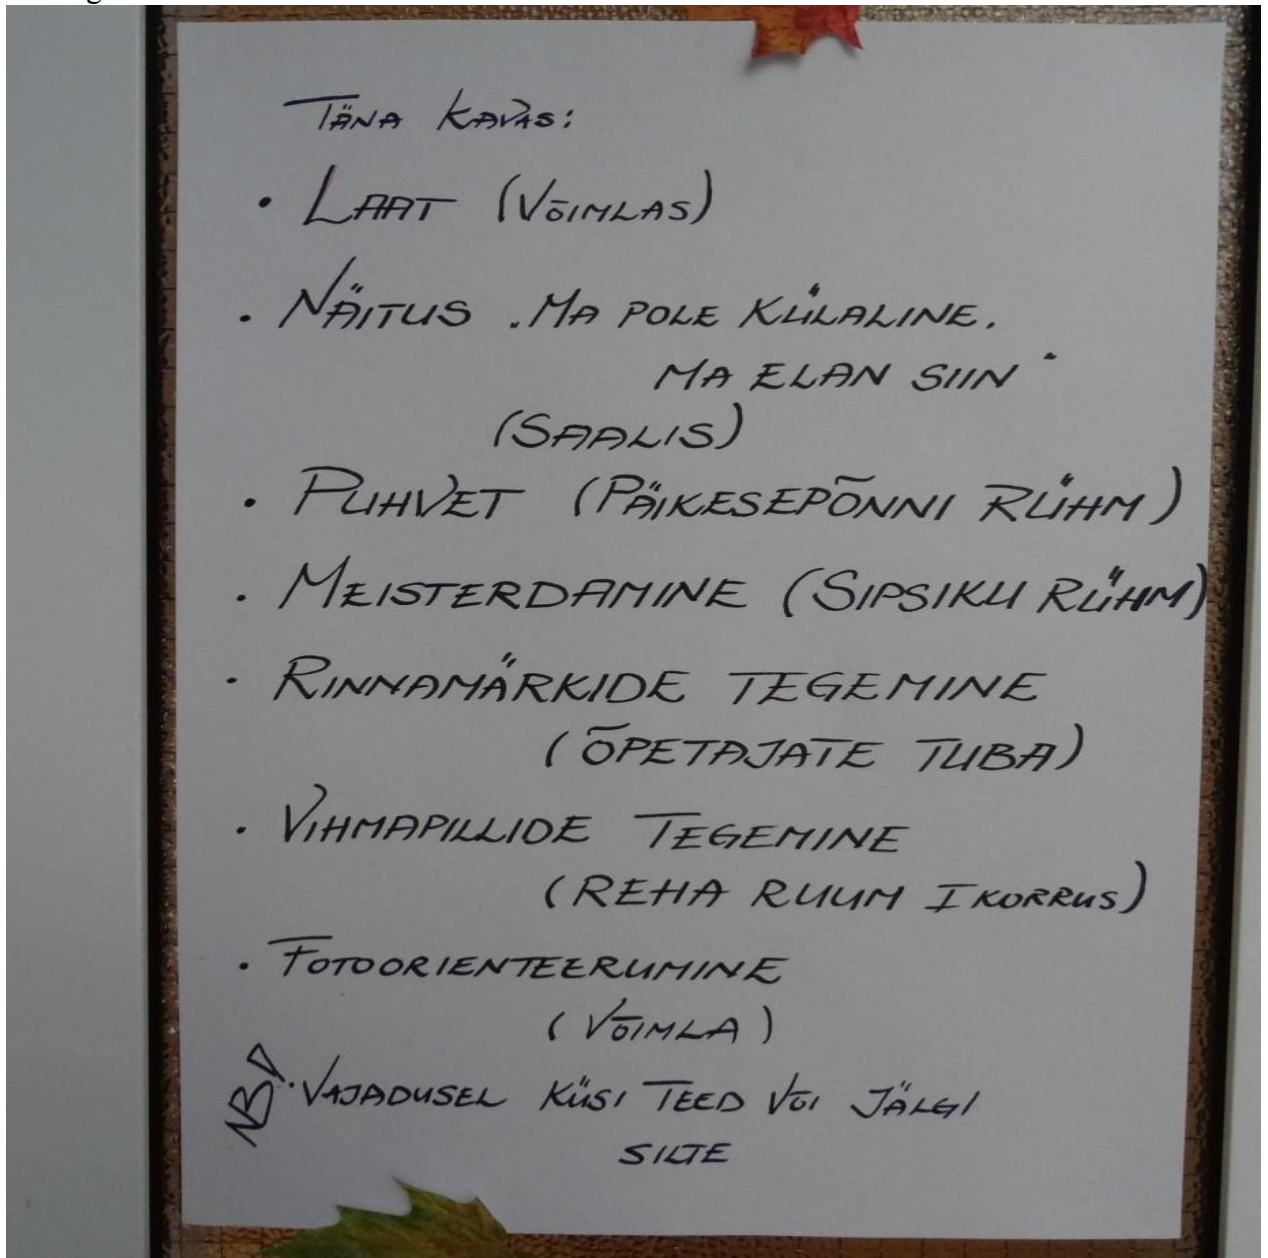 TÄNA KAVAS:
• LAAT (VÕIMLAS)
• NÄITUS "MA POLE KÜLALINE.
MA ELAN SIIN"
(SAALIS)
• PUHVET (PÄIKESEPÕNNI RÜHM)
• MEISTERDAMINE (SIPSIKU RÜHM)
• RINNAMÄRKIDE TEGEMINE
(ÕPETAJATE TUBA)
• VIHMAPILLIDE TEGEMINE
(REHA RUUM I KORRUS)
• FOTOORIENTEERUMINE
(VÕIMLA)
NB! • VAJADUSEL KÜSI TEED VÕI JÄLGI
SILTE